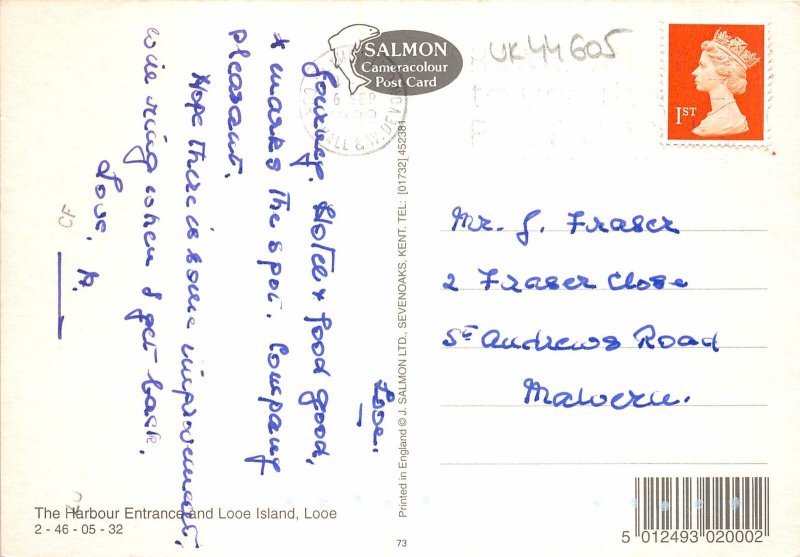 SALMON
Cameracolour
Post Card
UK44605
1ST
Looe.
Sunday. Hotel & food good,
x marks the spot. Company
pleasant.
Hope there is some improvement,
will ring when I get back.
Love, A.
CF
Mr. J. Fraser
2 Fraser Close
St Andrews Road
Malvern.
Printed in England © J. SALMON LTD., SEVENOAKS, KENT. TEL: [01732] 452381
The Harbour Entrance and Looe Island, Looe
2 - 46 - 05 - 32
73
5 012493 020002